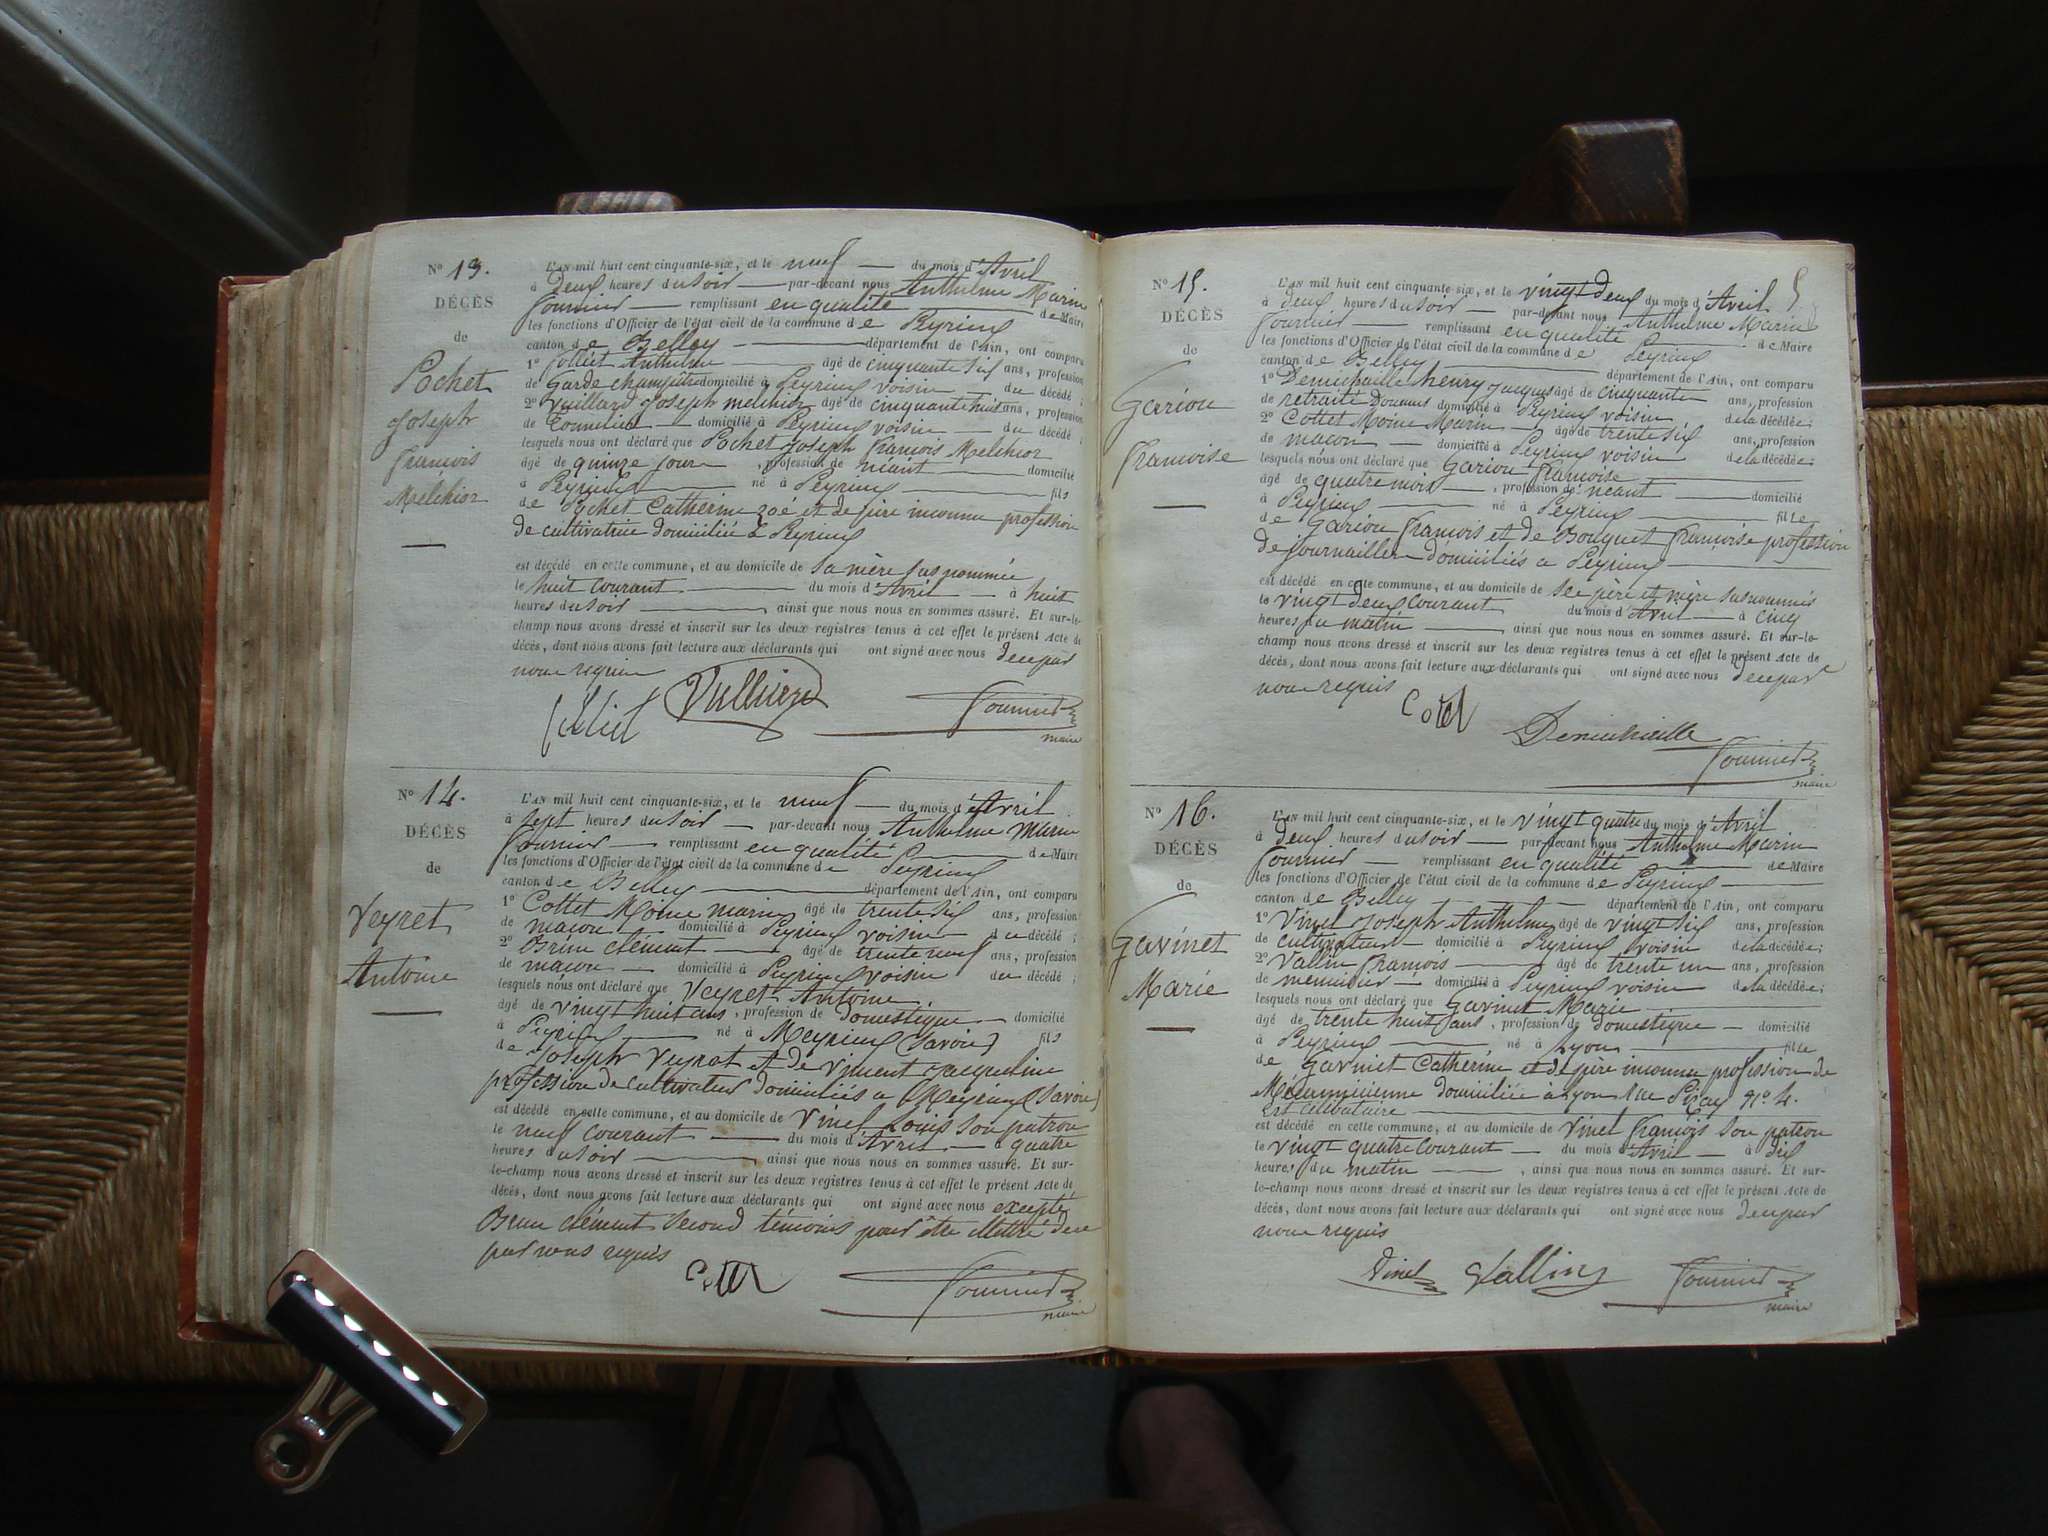 N° 13.
DÉCÈS
de
Pochet
Joseph
françois
Melchior
L'AN mil huit cent cinquante-six, et le neuf du mois d'Avril
à deux heures du soir par-devant nous Anthelme Marin
fournier remplissant en qualité de Maire
les fonctions d'Officier de l'état civil de la commune de Peyrieux
canton de Belley département de l'Ain, ont comparu
1° Anthelme âgé de cinquante six ans, profession
de Garde champêtre domicilié à Peyrieux voisin du décédé ;
2° Joseph melchior âgé de cinquante huit ans, profession
de Tonnelier domicilié à Peyrieux voisin du décédé ;
lesquels nous ont déclaré que Pochet Joseph françois Melchior
âgé de quinze jours, profession de néant domicilié
à Peyrieux né à Peyrieux fils
de Pochet Catherine zoé et de père inconnu profession
de cultivatrice domiciliée à Peyrieux
est décédé en cette commune, et au domicile de sa mère susnommée
le huit courant du mois d'Avril à huit
heures du soir, ainsi que nous nous en sommes assuré. Et sur-le-
champ nous avons dressé et inscrit sur les deux registres tenus à cet effet le présent Acte de
décès, dont nous avons fait lecture aux déclarants qui ont signé avec nous de ce par
nous requis
fournier
maire
N° 14.
DÉCÈS
de
Veyret
Antoine
L'AN mil huit cent cinquante-six, et le neuf du mois d'Avril
à sept heures du soir par-devant nous Anthelme Marin
fournier remplissant en qualité de Maire
les fonctions d'Officier de l'état civil de la commune de Peyrieux
canton de Belley département de l'Ain, ont comparu
1° Cottet Moine marin âgé de trente six ans, profession
de maçon domicilié à Peyrieux voisin du décédé ;
2° Brun clément âgé de trente neuf ans, profession
de maçon domicilié à Peyrieux voisin du décédé ;
lesquels nous ont déclaré que Veyret Antoine
âgé de vingt huit ans, profession de domestique domicilié
à Peyrieux né à Meyrieux (Savoie) fils
de Joseph Veyret et de Vincent Jacqueline
profession de cultivateur domiciliés à Meyrieux (Savoie)
est décédé en cette commune, et au domicile de Vinet Louis son patron
le neuf courant du mois d'Avril à quatre
heures du soir, ainsi que nous nous en sommes assuré. Et sur-
le-champ nous avons dressé et inscrit sur les deux registres tenus à cet effet le présent Acte de
décès, dont nous avons fait lecture aux déclarants qui ont signé avec nous excepté
Brun clément second témoins pour être illettré de ce
par nous requis
Cottet
fournier
maire
N° 15.
DÉCÈS
de
Gariou
françoise
5
L'AN mil huit cent cinquante-six, et le vingt deux du mois d'Avril
à deux heures du soir par-devant nous Anthelme Marin
fournier remplissant en qualité de Maire
les fonctions d'Officier de l'état civil de la commune de Peyrieux
canton de Belley département de l'Ain, ont comparu
1° Demichaille henry Jacques âgé de cinquante ans, profession
de retraité Douanes domicilié à Peyrieux voisin de la décédée ;
2° Cottet Moine Marin âgé de trente six ans, profession
de maçon domicilié à Peyrieux voisin de la décédée ;
lesquels nous ont déclaré que Gariou françoise
âgé de quatre mois, profession de néant domicilié
à Peyrieux né à Peyrieux fille
de Gariou françois et de Bouquet françoise profession
de journaillier domiciliés à Peyrieux
est décédé en cette commune, et au domicile de ses père et mère susnommés
le vingt deux courant du mois d'Avril à cinq
heures du matin, ainsi que nous nous en sommes assuré. Et sur-le-
champ nous avons dressé et inscrit sur les deux registres tenus à cet effet le présent Acte de
décès, dont nous avons fait lecture aux déclarants qui ont signé avec nous de ce par
nous requis
Cottet
Demichaille
fournier
maire
N° 16.
DÉCÈS
de
Gavinet
Marie
L'AN mil huit cent cinquante-six, et le vingt quatre du mois d'Avril
à deux heures du soir par-devant nous Anthelme Marin
fournier remplissant en qualité de Maire
les fonctions d'Officier de l'état civil de la commune de Peyrieux
canton de Belley département de l'Ain, ont comparu
1° Vinet Joseph Anthelme âgé de vingt six ans, profession
de cultivateur domicilié à Peyrieux voisin de la décédée ;
2° Vallin françois âgé de trente un ans, profession
de menuisier domicilié à Peyrieux voisin de la décédée ;
lesquels nous ont déclaré que Gavinet Marie
âgé de trente huit ans, profession de domestique domicilié
à Peyrieux né à Lyon fille
de Gavinet Catherine et de père inconnu profession de
Mécanicienne domiciliée à Lyon rue n° 4.
Est célibataire
est décédé en cette commune, et au domicile de Vinet françois son patron
le vingt quatre courant du mois d'Avril à dix
heures du matin, ainsi que nous nous en sommes assuré. Et sur-
le-champ nous avons dressé et inscrit sur les deux registres tenus à cet effet le présent Acte de
décès, dont nous avons fait lecture aux déclarants qui ont signé avec nous de ce par
nous requis
Vinet Vallin fournier
maire